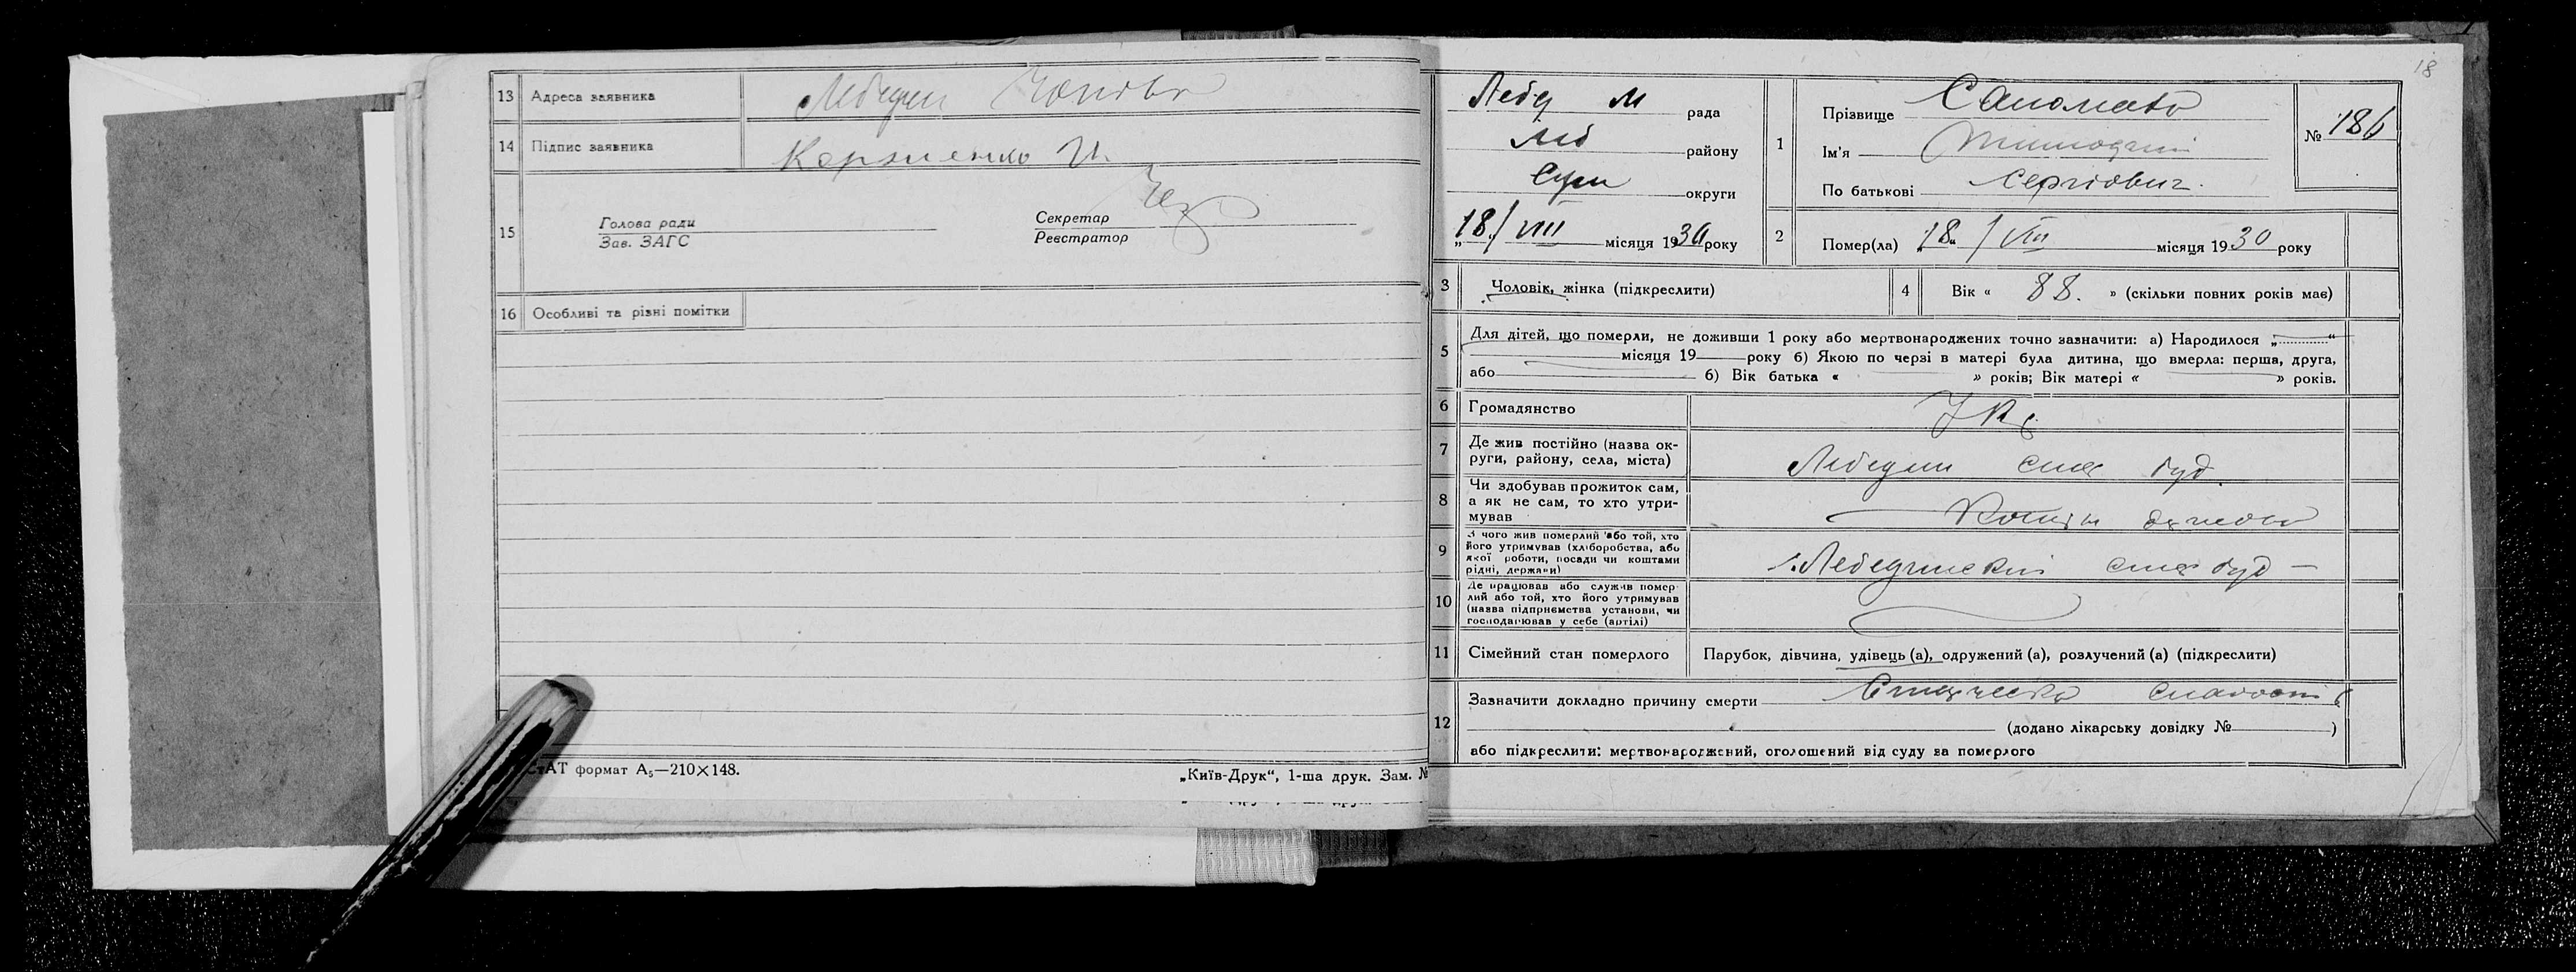 13 Адреса заявника Лебедин
14 Підпис заявника Корниенко И.
15 Голова ради
Зав. ЗАГС
Секретар
Реєстратор
16 Особливі та різні помітки
СтАТ формат А₅—210×148.
„Київ-Друк“, 1-ша друк. Зам. №
18
Лебед М рада
Леб району
Суми округи
„18“/VIII місяця 1930 року
1 Прізвище
Ім'я Тимофій
По батькові Сергійович.
№ 186
2 Помер(ла) „18“/VIII місяця 1930 року
3 Чоловік, жінка (підкреслити)
4 Вік « 88. » (скільки повних років має)
5 Для дітей, що померли, не доживши 1 року або мертвонароджених точно зазначити: а) Народилося „ “
місяця 19 року б) Якою по черзі в матері була дитина, що вмерла: перша, друга,
або б) Вік батька « » років; Вік матері « » років.
6 Громадянство Укр
7 Де жив постійно (назва ок-
руги, району, села, міста) Лебедин буд.
8 Чи здобував прожиток сам,
а як не сам, то хто утри-
мував
9 З чого жив померлий або той, хто
його утримував (хліборобства, або
якої роботи, посади чи коштами
рідні, держави) буд
10 Де працював або служив помер-
лий або той, хто його утримував
(назва підприємства установи, чи
господарював у себе (артілі)
11 Сімейний стан померлого Парубок, дівчина, удівець (а), одружений (а), розлучений (а) (підкреслити)
12 Зазначити докладно причину смерти
(додано лікарську довідку № )
або підкреслити: мертвонароджений, оголошений від суду за померлого